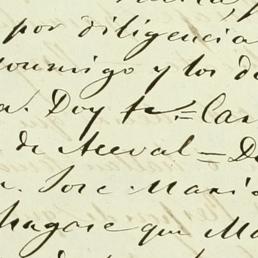 por diligencia
conmigo y los de
Doy fe.= Car
de Aceval = D
Jose Maria
hagase que Ma